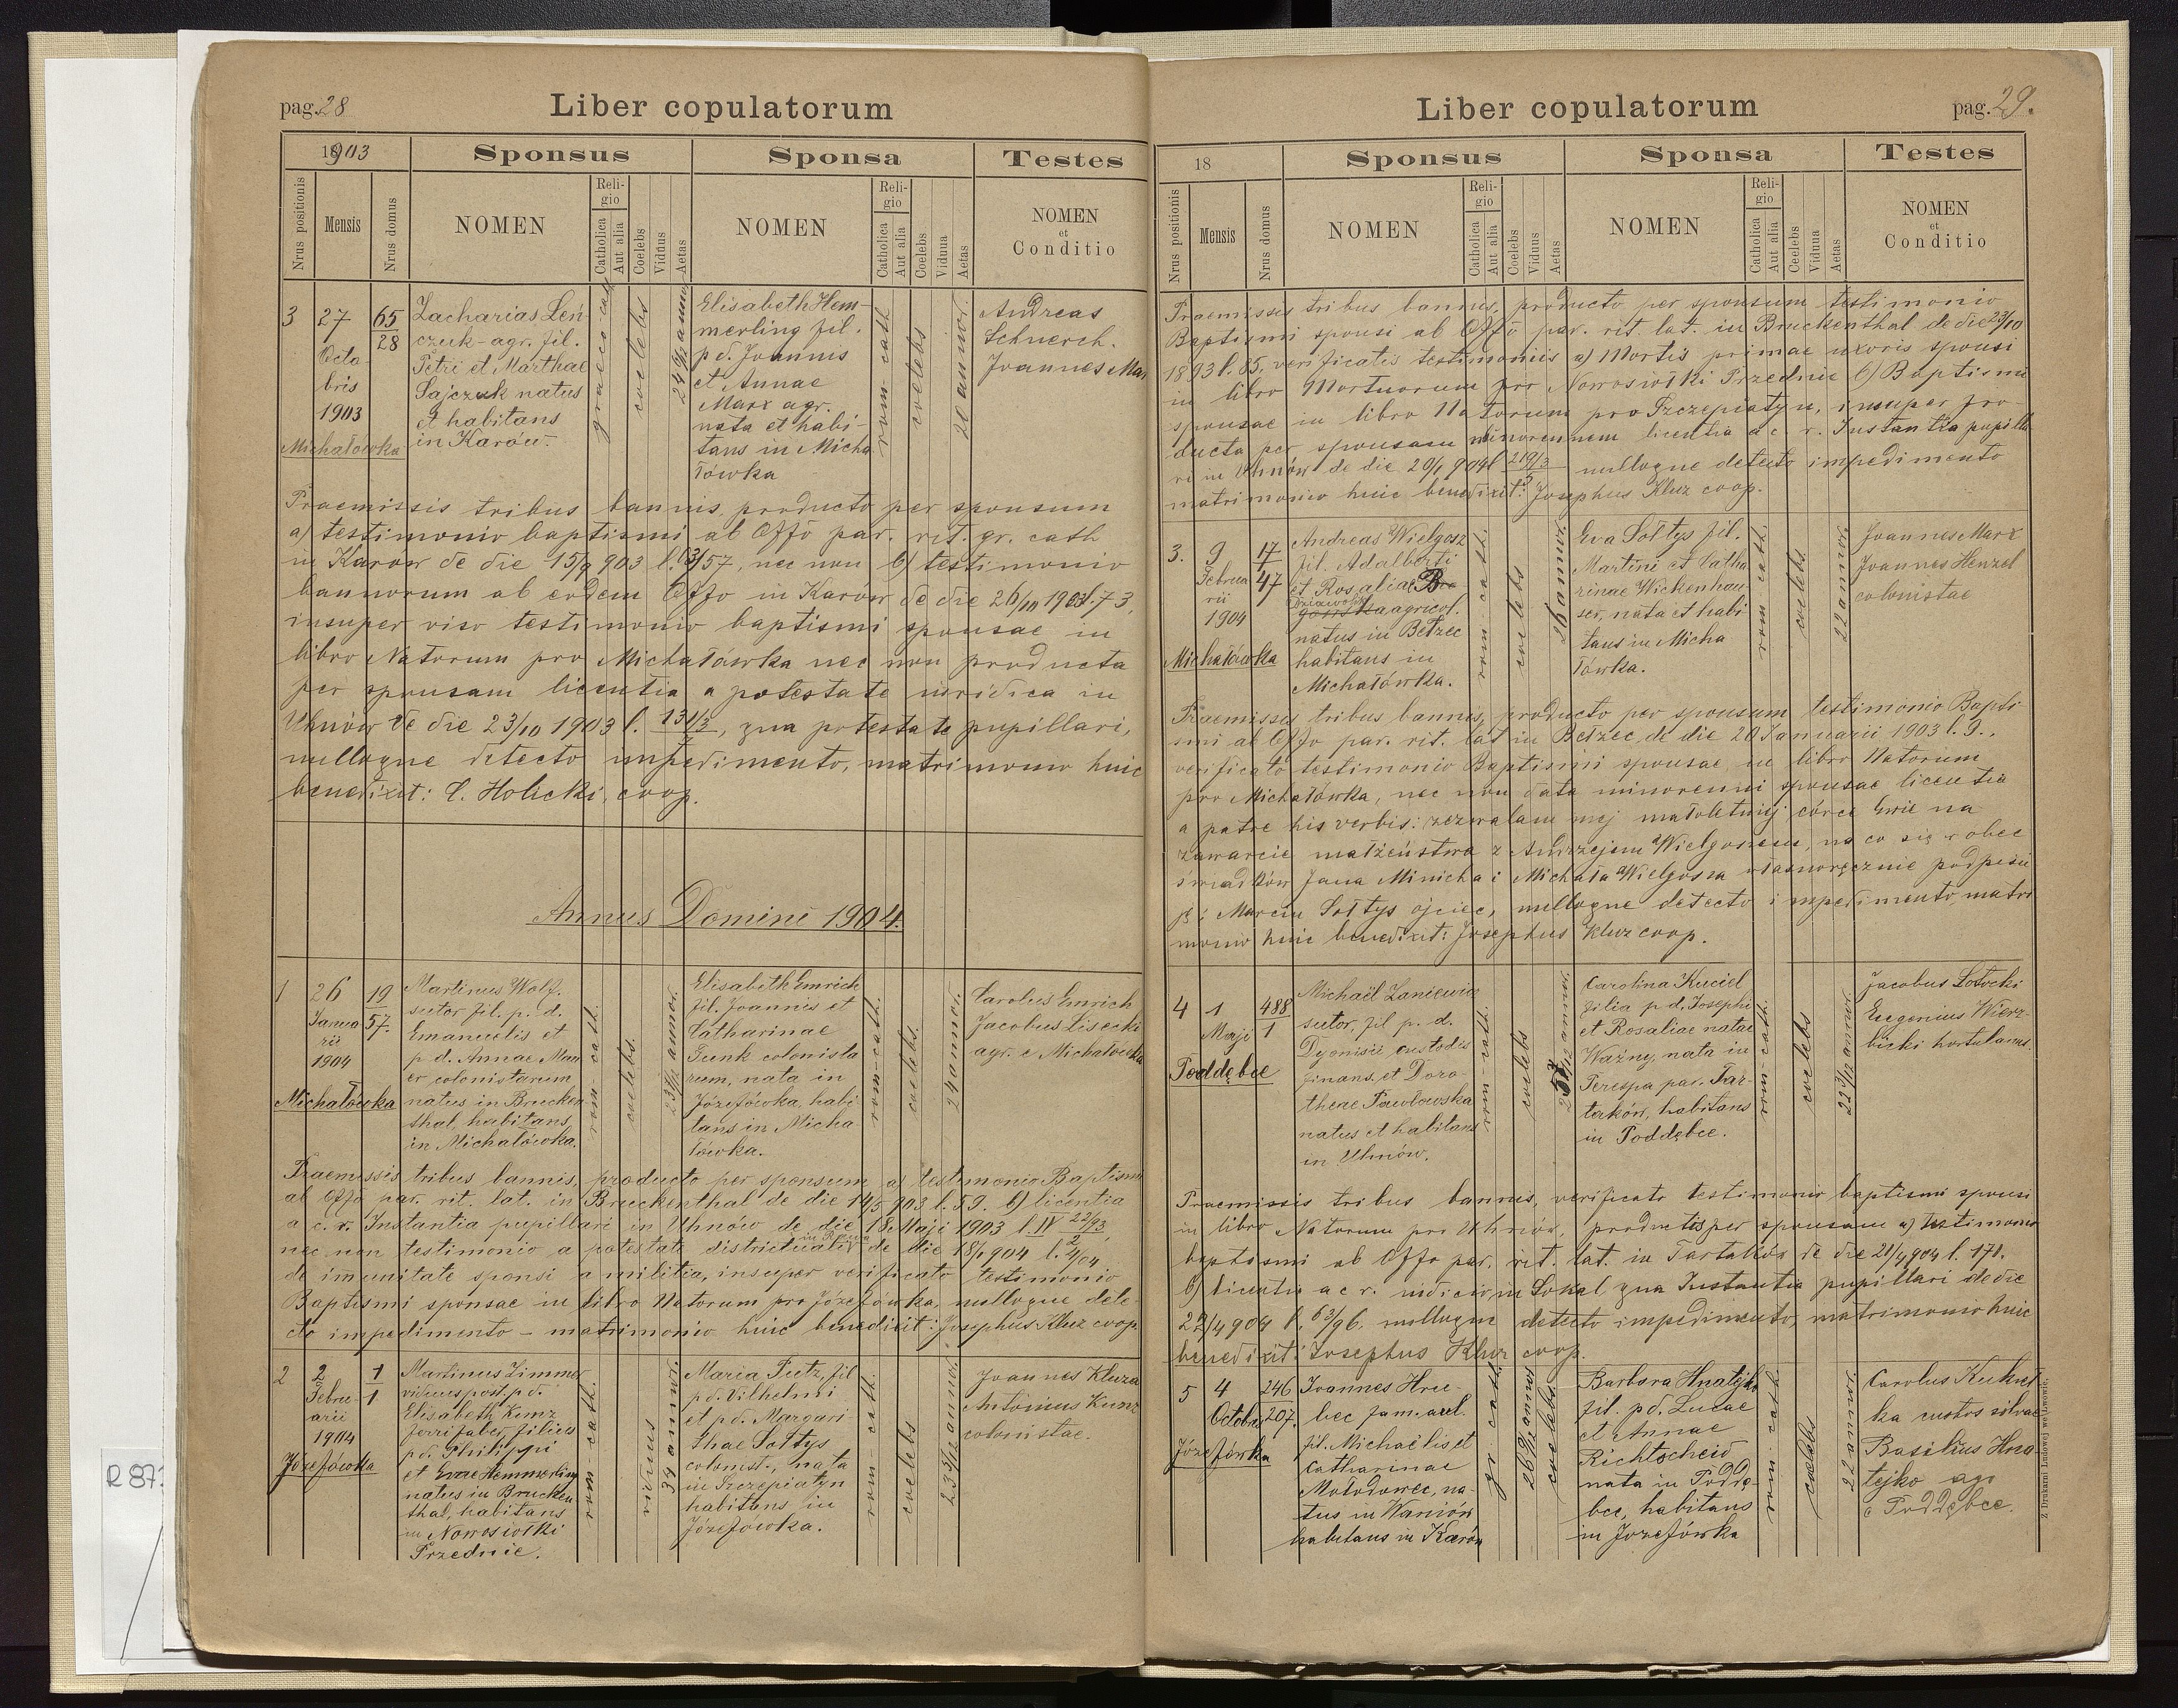 pag. 28
Liber copulatorum
1903
Sponsus
Sponsa
Testes
Nrus positionis
Mensis
Nrus domus
NOMEN
Religio
Catholica
Aut alia
Coelebs
Viduus
Aetas
NOMEN
Religio
Catholica
Aut alia
Coelebs
Vidua
Aetas
NOMEN
et
Conditio
3
27
Octo-
bris
1903
Michałówka
65
28
Zacharias Leń
czuk - agr. fil.
Petri et Marthae
Sajczuk natus
et habitans
in Karów.
graeco cath.
coelebs
24 6/12 annor.
Elisabeth Hem-
merling fil.
p d. Joannis
et Annae
Marx agr.
nata et habi-
tans in Micha
łówka
rom cath
coelebs
20 annor.
Andreas
Schnerch.
Joannes Mar
Praemissis tribus bannis, producto per sponsum
a) testimonio baptismi ab Offo par. rit. gr. cath
in Karów de die 15/9 903 l. 63/57, nec non b) testimonio
bannorum ab eodem Offo in Karów de die 26/10 1903 l. 73,
insuper viso testimonio baptismi sponsae in
libro Natorum pro Michałówka nec non producta
per sponsam licentia a potestate iuridica in
Uhnów de die 23/10 1903 l. 131/3, qua potestate pupillari,
nulloque detecto impedimento, matrimonio huic
benedixit: C. Holicki, coop.
Annus Domini 1904.
1
26
Janua
rii
1904
Michałówka
19
57.
Martinus Wolf.
sutor fil. p. d.
Emanuelis et
p d. Annae Mau
er colonistarum
natus in Brucken
thal, habitans
in Michałówka.
rom-cath.
coelebs.
23 1/12 annor.
Elisabeth Emrich
fil. Joannis et
Catharinae
Junk colonista
rum, nata in
Józefówka, habi
tans in Micha
łówka.
rom-cath.
coelebs.
24 annor.
Carolus Emrich
Jacobus Lisecki
agr. e Michałówka
Praemissis tribus bannis, producto per sponsum a) testimonio Baptismi
ab Offo par. rit. lat. in Bruckenthal de die 14/5 903 l. 59. b) licentia
a c. r. Instantia pupillari in Uhnów de die 18. Maji 1903 l. IV 22/03
nec non testimonio a potestate districtuali in Rawa de die 18/1 904 l. 2/04
de imunitate sponsi a militia, insuper verificato testimonio
Baptismi sponsae in libro Natorum pro Józefówka, nulloque dete-
cto impedimento - matrimonio huic benedixit: Josephus Kluz coop
2
2
Febru-
arii
1904
Józefówka
1
1
Martinus Zimmer
viduus post. p d.
Elisabeth Kunz
ferrifaber, filius
p d. Philippi
et Evae Hemmerling
natus in Brucken
thal, habitans
in Nowosiołki
Przednie.
rom-cath.
viduus
34 annor.
Maria Futz, fil
p d. Vilhelmi
et p d. Margari
thae Sołtys
colonist., nata
in Szczepiatyn
habitans in
Józefówka.
rom-cath.
coelebs
23 3/12 annor.
Joannes Kluza
Antonius Kunz
colonistae.
Liber copulatorum
pag. 29.
18
Sponsus
Sponsa
Testes
Nrus positionis
Mensis
Nrus domus
NOMEN
Religio
Catholica
Aut alia
Coelebs
Viduus
Aetas
NOMEN
Religio
Catholica
Aut alia
Ceelebs
Vidua
Aetas
NOMEN
et
Conditio
Praemissis tribus bannis, producto per sponsum testimonio
Baptismi sponsi ab Offo par. rit. lat. in Bruckenthal de die 23/10
1893 l. 85, verificatis testimoniis a) Mortis primae uxoris sponsi
in libro Mortuorum pro Nowosiołki Przednie b) Baptismi
sponsae in libro Natorum pro Szczepiatyn, insuper pro-
ducta per sponsam minorennem licentia a c. r. Instantia pupilla
ri in Uhnów de die 20/1 904 l 219/3 nulloque detecto impedimento
matrimonio huic benedixit: Josephus Kluz coop.
3.
9
Februa
rii
1904
Michałówka
17
47
Andreas Wielgosz
fil. Adalberti
et Rosaliae
agricol.
natus in Bełzec
habitans in
Michałówka.
rom-cath.
coelebs
26 annor.
Eva Sołtys fil.
Martini et Catha
rinae Wickenhau
ser, nata et habi
tans in Micha
łówka.
rom cath.
coelebs.
22 annor.
Joannes Marx
Joannes Henzel
colonistae
Praemissis tribus bannis, producto per sponsum testimonio Bapti
smi ab Offo par. rit. lat in Bełzec, de die 20 Januarii 1903 l. 9.,
verificato testimonio Baptismi sponsae in libro Natorum
pro Michałówka, nec non data minorenni sponsae licentia
a patre his verbis: zezwalam mej małoletniej córce Ewie na
zawarcie małżeństwa z Andrzejem Wielgoszem, na co się w obec
świadków Jana Minicha i Michała Wielgosza własnoręcznie podpisu
ję: Marcin Sołtys ojciec, nulloque detecto impedimento, matri
monio huic benedixit: Josephus Kluz coop.
4
1
Maji
Poddębce
488
1
Michaël Zaniewicz
sutor, fil p. d.
Dyonisii custodis
finans. et Doro-
theae Pawłowska
natus et habitans
in Uhnów.
rom-cath.
coelebs
annor.
Carolina Kuciel
filia p d. Josephi
et Rosaliae natae
Ważny, nata in
Perespa par. Tar-
taków, habitans
in Poddębce.
rom-cath.
coelebs
22 3/12 annor.
Jacobus Łotocki
Eugenius Wierz-
bicki hortulanus.
Praemissis tribus bannis, verificato testimonio baptismi sponsi
in libro Natorum pro Uhnów, productis per sponsam a) testimonio
baptismi ab Offo par. rit. lat. in Tartaków de die 21/4 904 l. 171.
b) licentia a c r. iudicio in Sokal qua Instantia pupillari de die
22/4 904 l. 63/96. nulloque detecto impedimento, matrimonio huic
benedixit: Josephus Kluz coop.
5
4
Octobris
Józefówka
246
207.
Joannes Hru-
bec fam. aul.
fil. Michaëlis et
Catharinae
Mołodowec, na-
tus in Waniów
habitans in Karów
gr. cath.
26 annor
coelebs
Barbara Hnatejko
fil. p d. Lucae
et Annae
Richtscheid
nata in Poddę-
bce, habitans
in Józefówka
rom cath
coelebs
22 annor.
Carolus Kukieł
ka custos silvae
Basilius Hna-
tejko agr
e Poddębce.
Z Drukarni Ludowej we Lwowie.
R 87